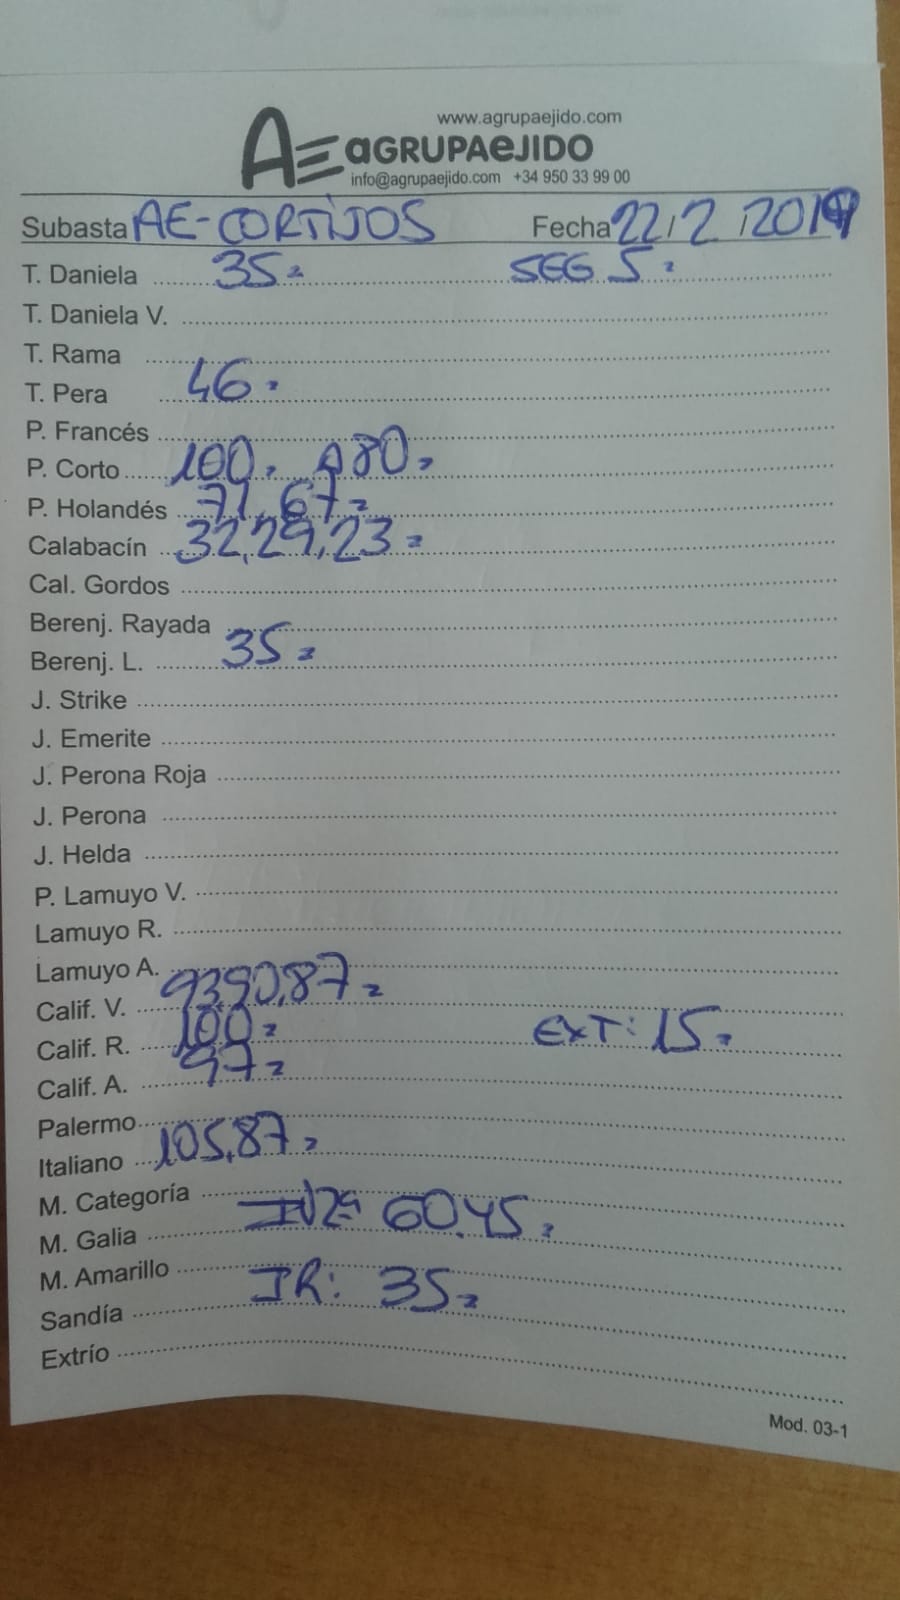 www.agrupaejido.com
AE aGRUPAeJIDO
info@agrupaejido.com +34 950 33 99 00
Subasta AE-CORTIJOS Fecha 22/2/2019
T. Daniela 35 SEG 5
T. Daniela V.
T. Rama
T. Pera 46
P. Francés
P. Corto 100 A80
P. Holandés 71,67
Calabacín 32,29,23
Cal. Gordos
Berenj. Rayada
Berenj. L. 35
J. Strike
J. Emerite
J. Perona Roja
J. Perona
J. Helda
P. Lamuyo V.
Lamuyo R.
Lamuyo A.
Calif. V. 93,90,87
Calif. R. 100 EXT: 15
Calif. A. 97
Palermo
Italiano 105,87
M. Categoría
M. Galia 60,45
M. Amarillo
Sandía JR: 35
Extrío
Mod. 03-1